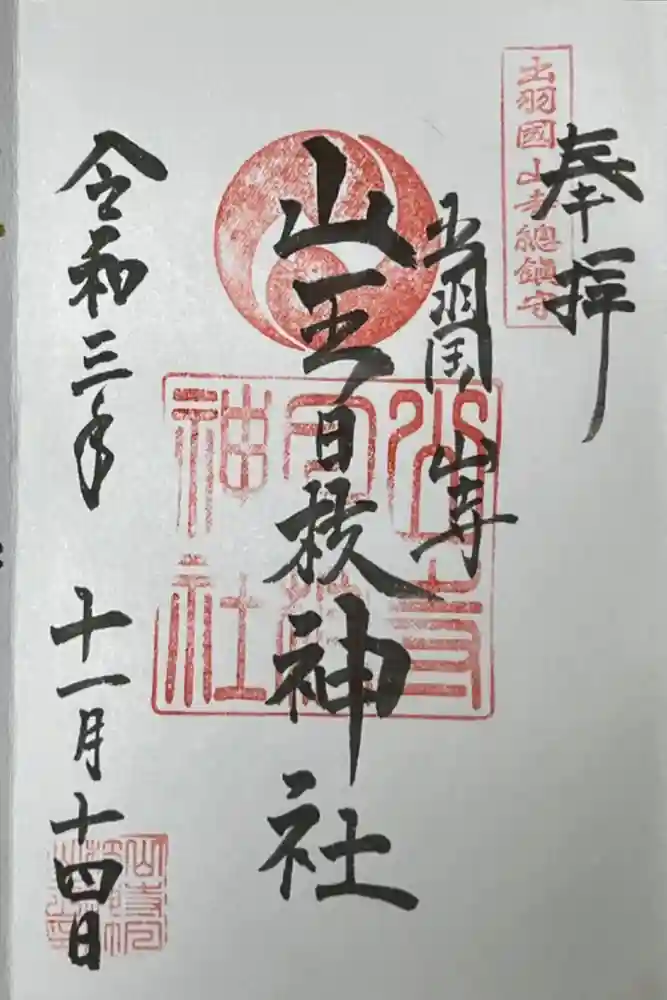 奉拝
出羽國山寺總鎮守
出羽国 山寺
山王日枝神社
山寺
日枝
神社
令和三年 十一月十四日